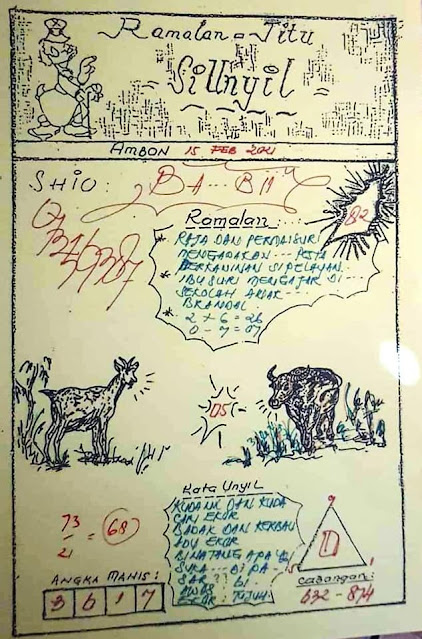 Ramalan = Jitu
Si Unyil
AMBON 15 FEB 2021
SHIO: BA - BU
82
Ramalan:
* RAJA DAN PERMAISURI
MENGADAKAN ... PESTA
* PERKAWINAN SI PELAYAN ...
* IBU SURI MENGAJAR DI ...
SEKOLAH ANAK ...
BRANDAL.
* 2 + 6 = 26
0 - 7 = 07
05
Kata Unyil
KUDANIL DAN KUDA
CARI EKOR
BADAK DAN KERBAU
ADU EKOR
BINATANG APA YG
SUKA ... DI PA ...
SAR ?
EKOR. TUJUH.
73
21 = 68
ANGKA MANIS:
3 6 1 7
9
0
5 1
Cabangan:
632 - 874